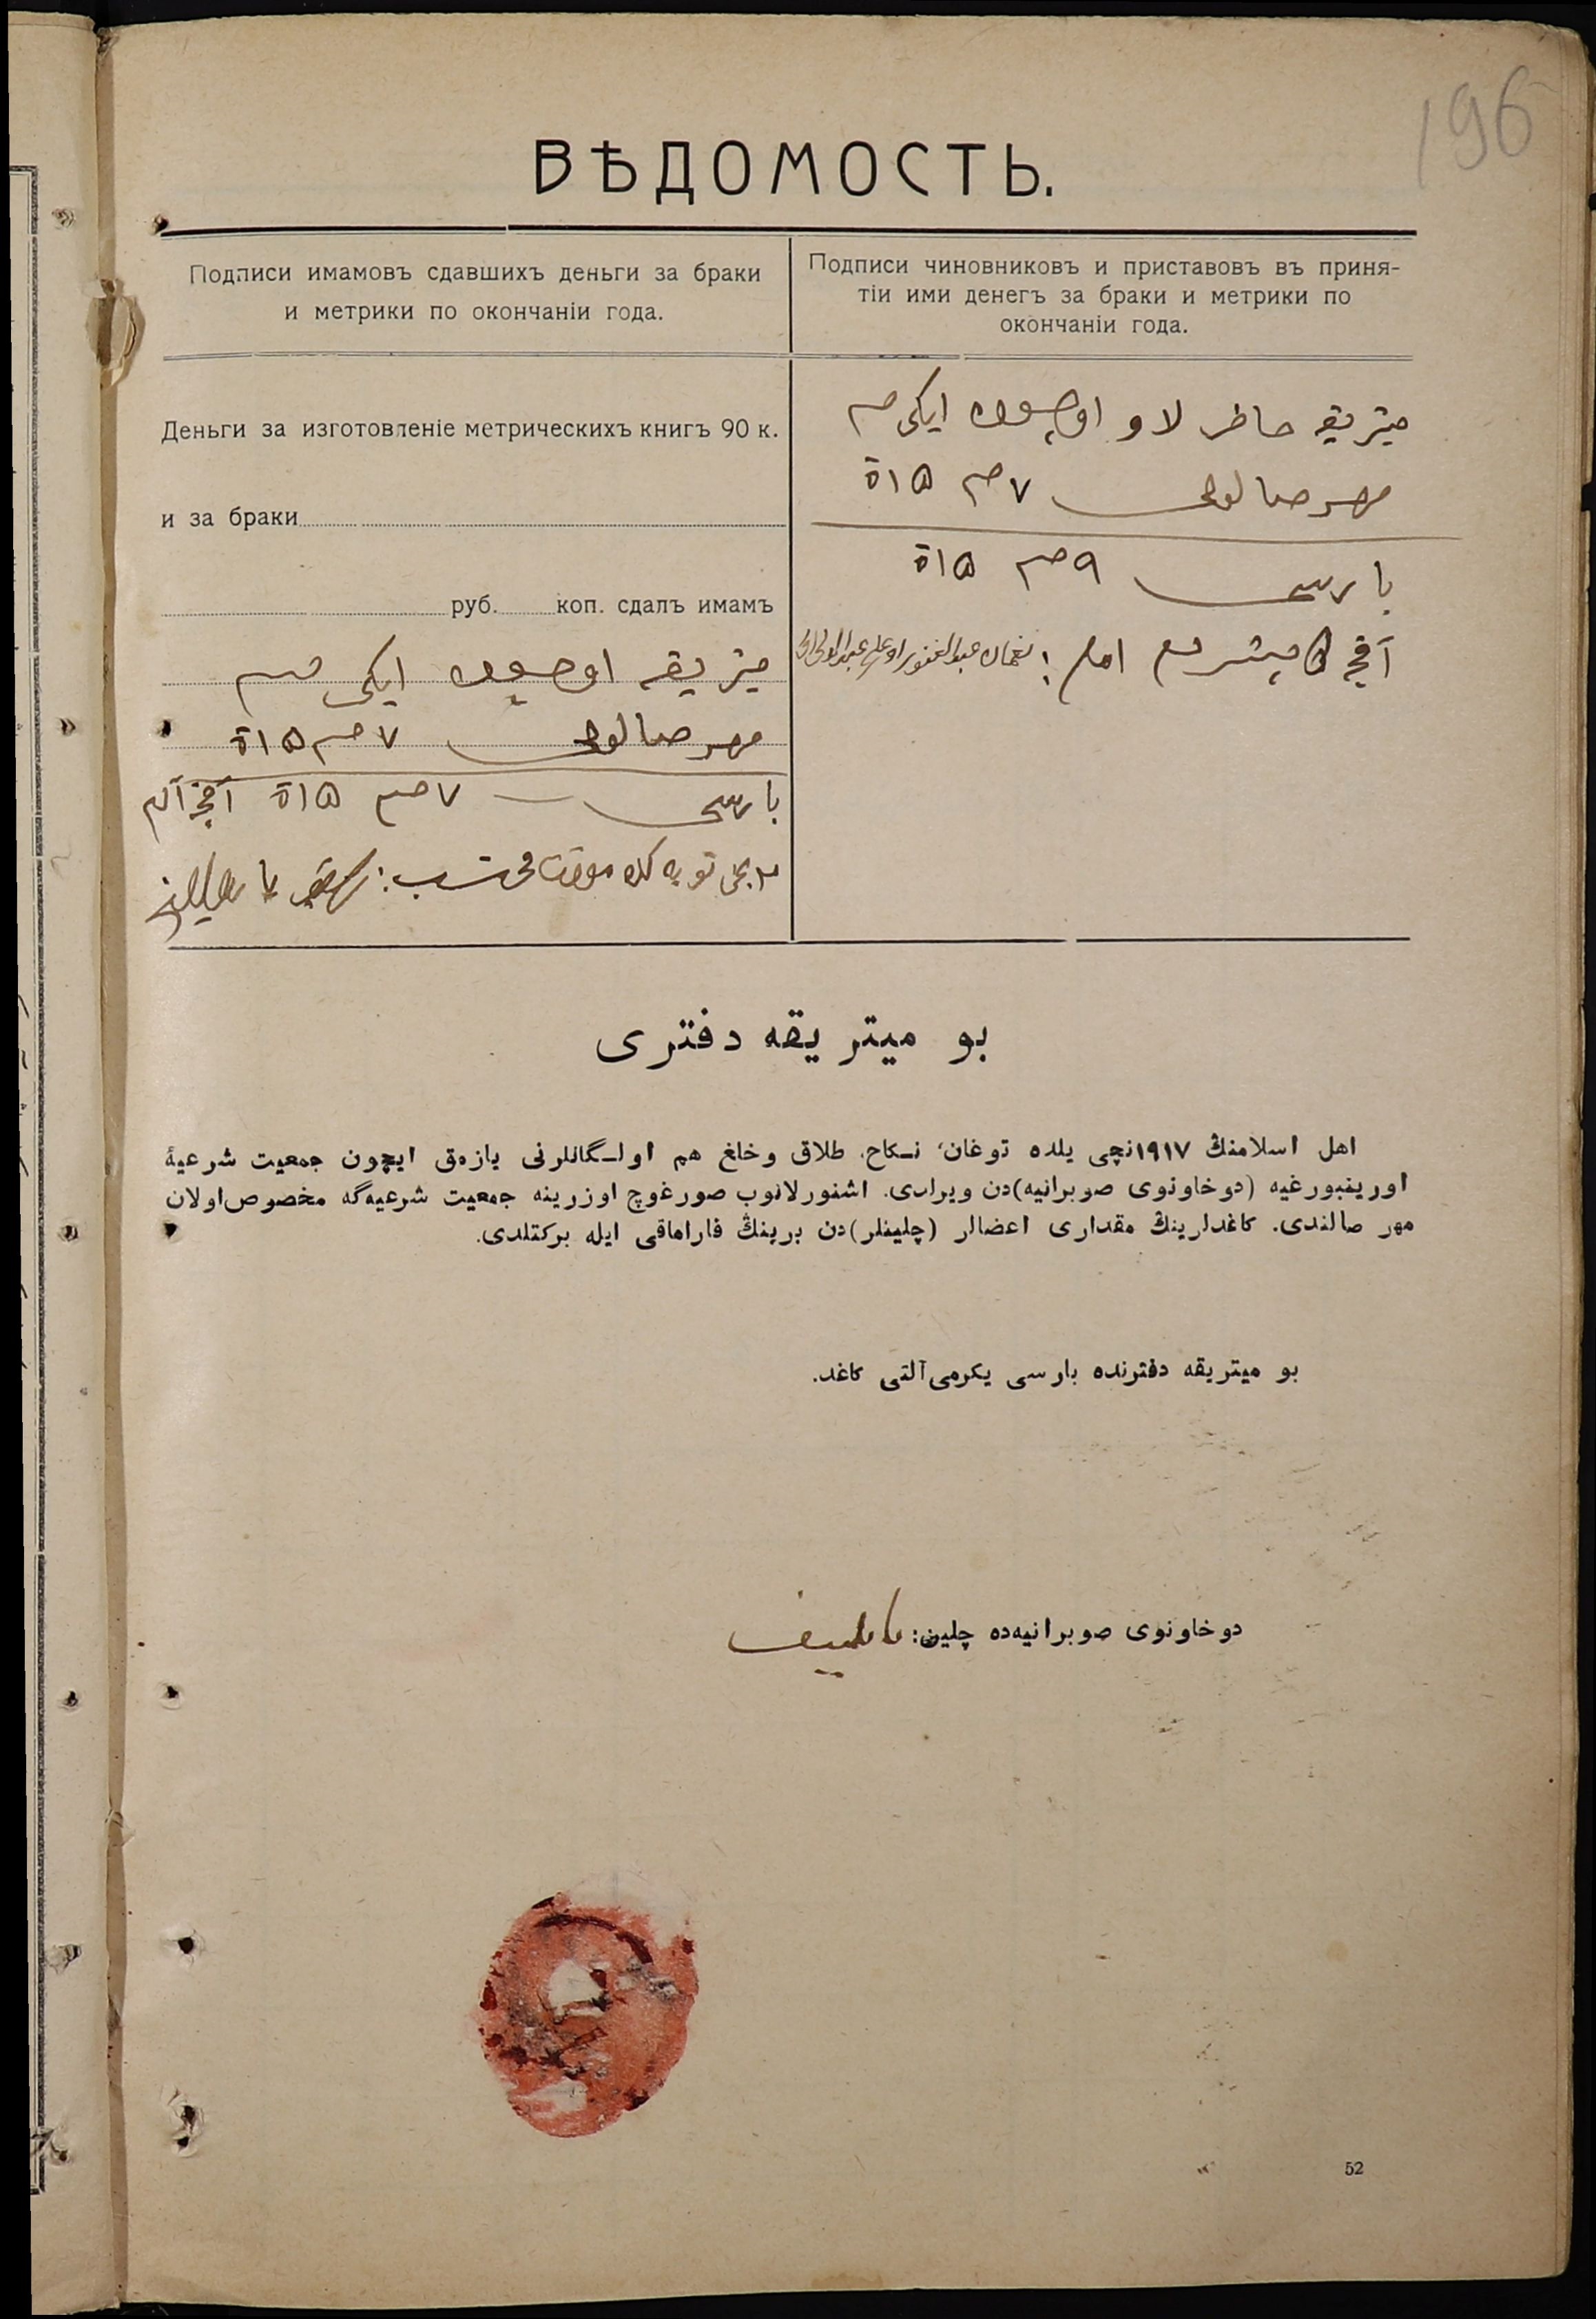 196
ВѢДОМОСТЬ.
Подписи имамовъ сдавшихъ деньги за браки
и метрики по окончаніи года.
Подписи чиновниковъ и приставовъ въ приня-
тіи ими денегъ за браки и метрики по
окончаніи года.
Деньги за изготовленіе метрическихъ книгъ 90 к.
и за браки
руб. коп. сдалъ имамъ
میتریقه اوچون ایکی
مهر صالوچی ٧ ١٥
بارسی ٧ ١٥ آقچه آلدم
میتریقه حاضرلاو اوچون ایکی
مهر صالوچی ٧ ١٥
بارسی ٩ ١٥
آقچه امام : نعمان عبدالغفور اوغلی
بو میتریقه دفتری
اهل اسلامنڭ ١٩١٧نچی یلده توغان، نـکاح، طلاق وخلع هم اولـگانلرنی یازمق ایچون جمعیت شرعیۀ
اورینبورغیه (دوخاونوی صوبرانیه)دن ویرلدی. اشنورلانوب صورغوچ اوزرینه جمعیت شرعیه‌گه مخصوص اولان
مهر صالندی. کاغدلرینڭ مقداری اعضالر (چلینلر)دن برینڭ قارامافی ایله برکتلدی.
بو میتریقه دفترنده بارسی یکرمی آلتی کاغد.
دوخاونوی صوبرانیه‌ده چلین:
52